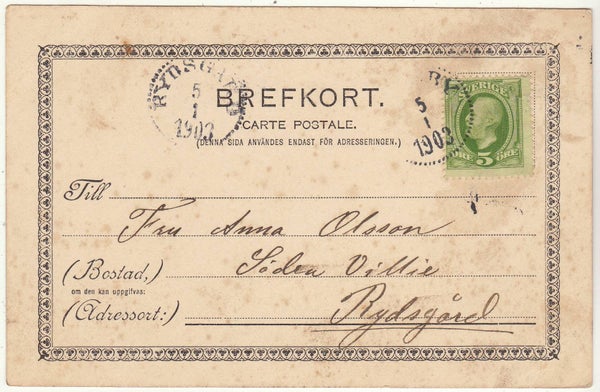 RYDSGÅRD
5
1
1903
BREFKORT.
CARTE POSTALE.
(DENNA SIDA ANVÄNDES ENDAST FÖR ADRESSERINGEN.)
RY
5
1
1903
SVERIGE
ÖRE 5 ÖRE
Till
Fru Anna Olsson
Söden Villie
(Bostad,)
om den kan uppgifvas:
(Adressort:) Rydsgård